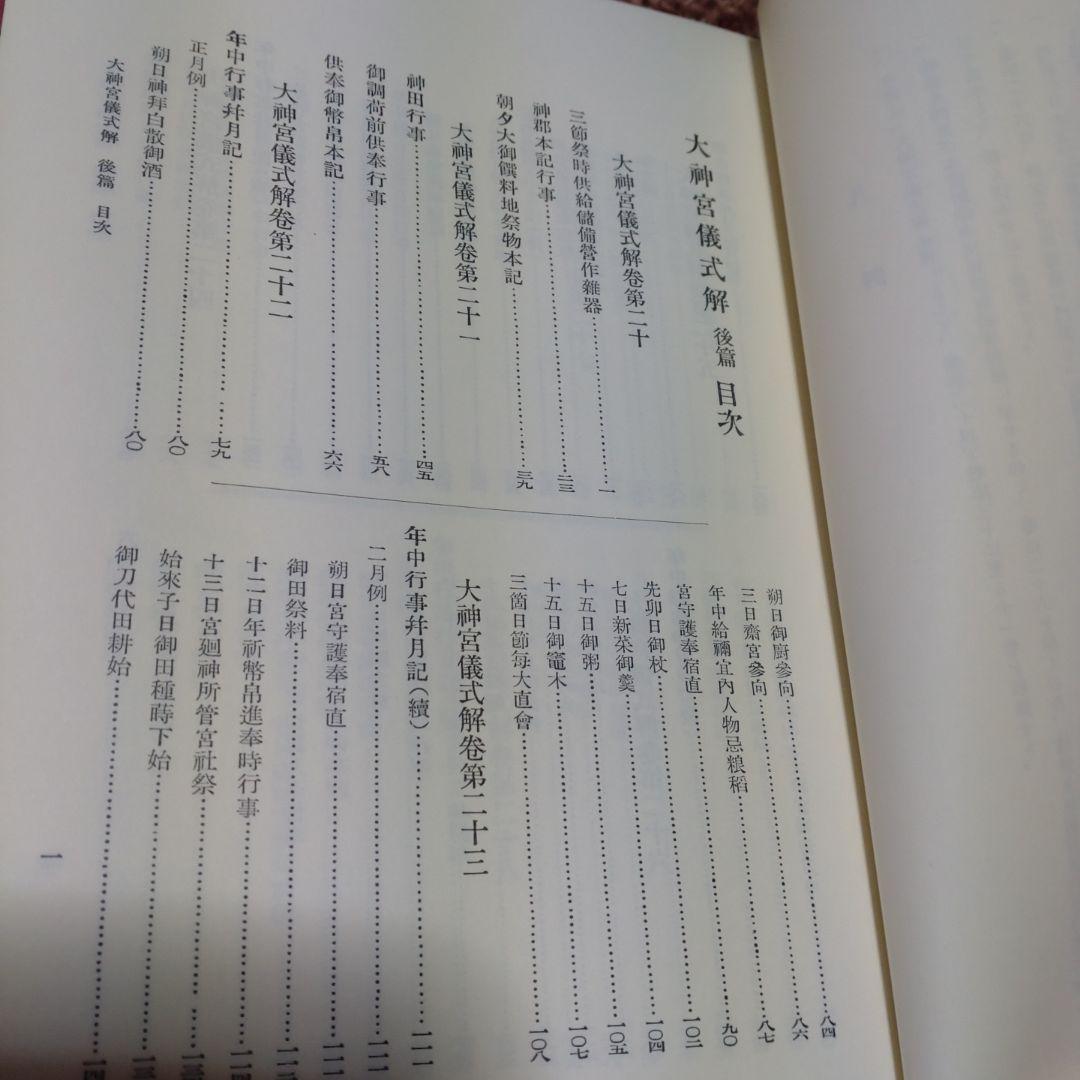 大神宮儀式解 後篇 目次
大神宮儀式解卷第二十
三節祭時供給儲備營作雜器…………一
神郡本記行事…………二三
朝夕大御饌料地祭物本記…………三九
大神宮儀式解卷第二十一
神田行事…………四五
御調荷前供奉行事…………五八
供奉御幣帛本記…………六六
大神宮儀式解卷第二十二
年中行事幷月記…………七九
正月例…………八〇
朔日神拜白散御酒…………八〇
朔日御厨參向…………八四
三日齋宮參向…………八六
年中給禰宜內人物忌粮稻…………八七
宮守護奉宿直…………九〇
先卯日御杖…………一〇二
七日新菜御羹…………一〇四
十五日御粥…………一〇五
十五日御竈木…………一〇七
三箇日節每大直會…………一〇八
大神宮儀式解卷第二十三
年中行事幷月記(續)…………一一一
二月例…………一一一
朔日宮守護奉宿直…………一一一
御田祭料…………
十二日年祈幣帛進奉時行事…………
十三日宮廻神所管宮社祭…………
始來子日御田種蒔下始…………
御刀代田耕始…………
大神宮儀式解 後篇 目次
一